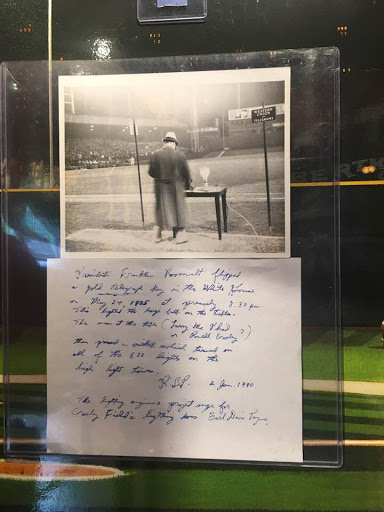 WESTERN
UNION
TELEGRAMS
President Franklin Roosevelt flipped
a gold telegraph key in the White House
on May 24, 1935 at precisely 8:30 pm.
This lighted the large bulb on the table.
The man at the table (Larry Mc Phail
or Powell Crosley?)
then pressed a switch which turned on
all of the 632 lights on the
high light towers.
R.S.P. 2 Jan. 1990
The lighting engineer project mgr for
Crosley Field's lighting was Earl Payne.